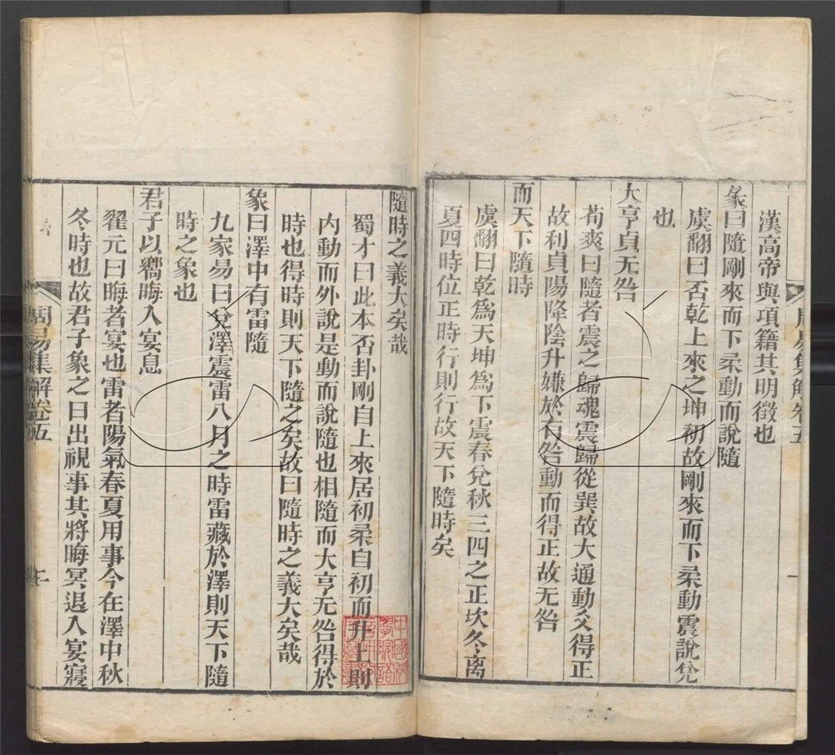 周易集解卷五
漢高帝與項籍其明徵也
彖曰隨剛來而下柔動而說隨
虞翻曰否乾上來之坤初故剛來而下柔動震說兌
也
大亨貞无咎
荀爽曰隨者震之歸魂震歸從巽故大通動爻得正
故利貞陽降陰升嫌於有咎動而得正故无咎
而天下隨時
虞翻曰乾爲天坤爲下震春兌秋三四之正坎冬离
夏四時位正時行則行故天下隨時矣
隨時之義大矣哉
蜀才曰此本否卦剛自上來居初柔自初而升上則
内動而外說是動而說隨也相隨而大亨无咎得於
時也得時則天下隨之矣故曰隨時之義大矣哉
象曰澤中有雷隨
九家易曰兌澤震雷八月之時雷藏於澤則天下隨
時之象也
君子以嚮晦入宴息
翟元曰晦者宴也雷者陽氣春夏用事今在澤中秋
冬時也故君子象之日出視事其將晦冥退入宴寢
周易集解卷五